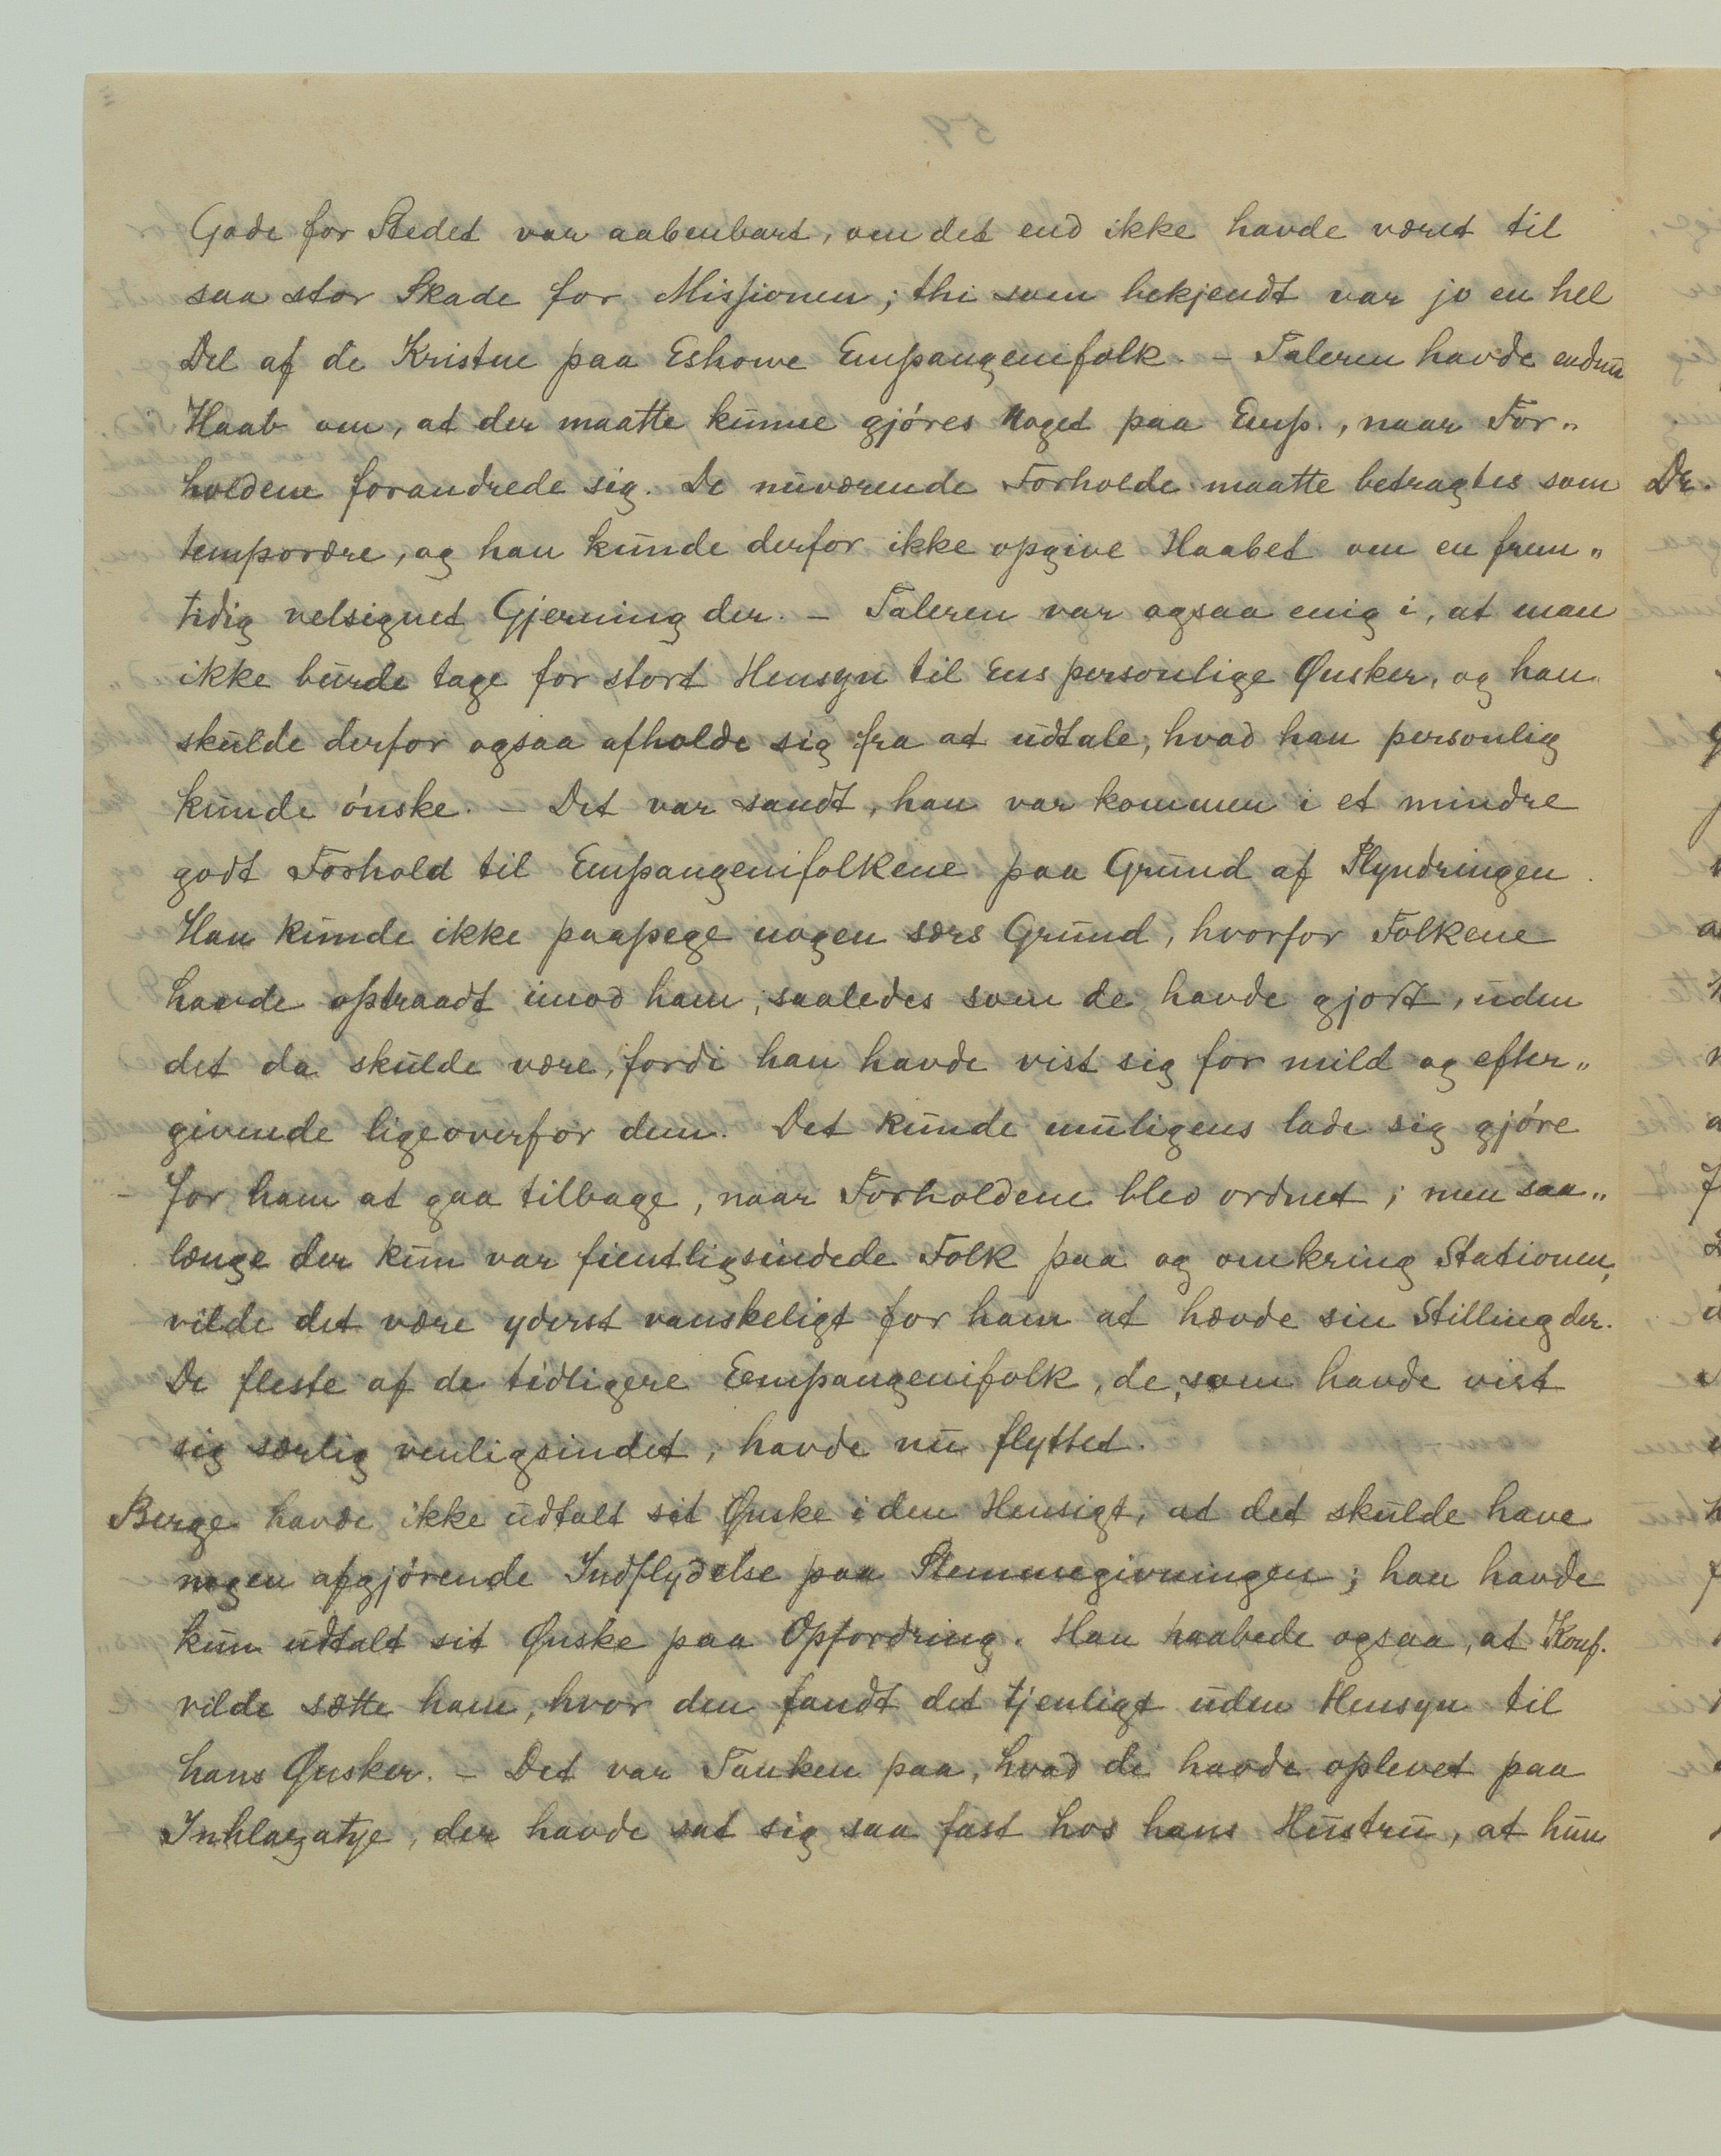 Gode for Stedet var aabenbart, om det end ikke havde været til
saa stor Skade for Missionen; thi som bekjendt var jo en hel
Del af de Kristne paa Eshowe Empangenifolk. – Taleren havde endnu
Haab om, at der maatte kunne gjøres noget paa Emp., naar For„
holdene forandrede sig. De nuværende Forholde maatte betragtes som
temporære, og han kunde derfor ikke opgive Haabet om en frem„
tidig velsignet Gjerning der. – Taleren var ogsaa enig i, at man
ikke burde tage for stort Hensyn til Ens personlige Ønsker, og han
skulde derfor ogsaa afholde sig fra at udtale, hvad han personlig
kunde ønske. – Det var sandt, han var kommen i et mindre
godt Forhold til Empangenifolkene paa Grund af Plyndringen.
Han kunde ikke paapege nogen særs Grund, hvorfor Folkene
havde optraadt imod ham, saaledes som de havde gjort, uden
det da skulde være, fordi han havde vist sig for mild og efter„
givende ligeoverfor dem. Det kunde muligens lade sig gjøre
for ham at gaa tilbage, naar Forholdene blev ordnet; men saa„
længe der kun var fientligsindede Folk paa og omkring Stationen,
vilde det være yderst vanskeligt for ham at hævde sin Stilling der.
De fleste af de tidligere Eempangenifolk, de, som havde vist
sig særlig venligsindet, havde nu flyttet.
Berge havde ikke udtalt sit Ønske i den Hensigt, at det skulde have
nogen afgjørende Indflydelse paa Stemmegivningen; han havde
kun udtalt sit Ønske paa Opfordring. Han haabede ogsaa, at Konf.
vilde sætte ham, hvor den fandt det tjenligt uden Hensyn til
hans Ønsker. – Det var Tanken paa, hvad de havde oplevet paa
Inhlazatye, der havde sat sig saa fast hos hans Hustru, at hun